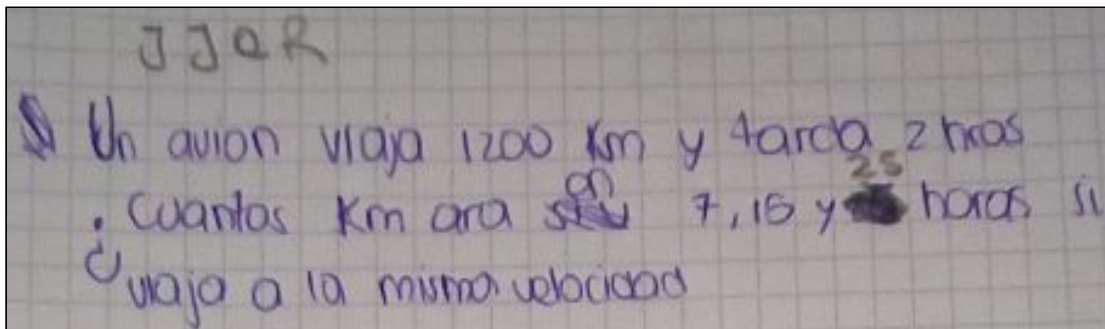 JJQR
Un avion viaja 1200 Km y tarda 2 hras
¿Cuantas Km ara en 7, 15 y 25 horas si
viaja a la misma velocidad